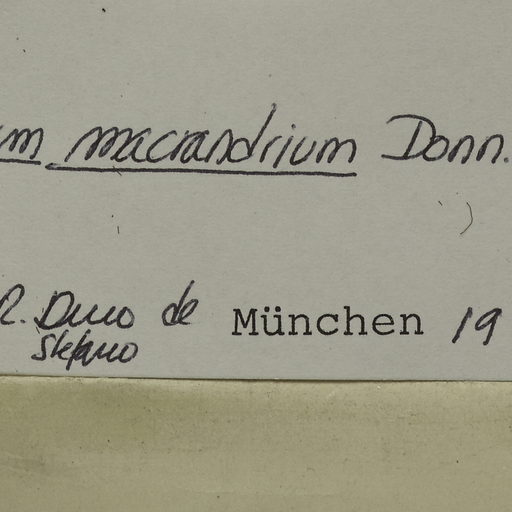 um macrandrium Donn.
R. Duno de München 19
Stefano